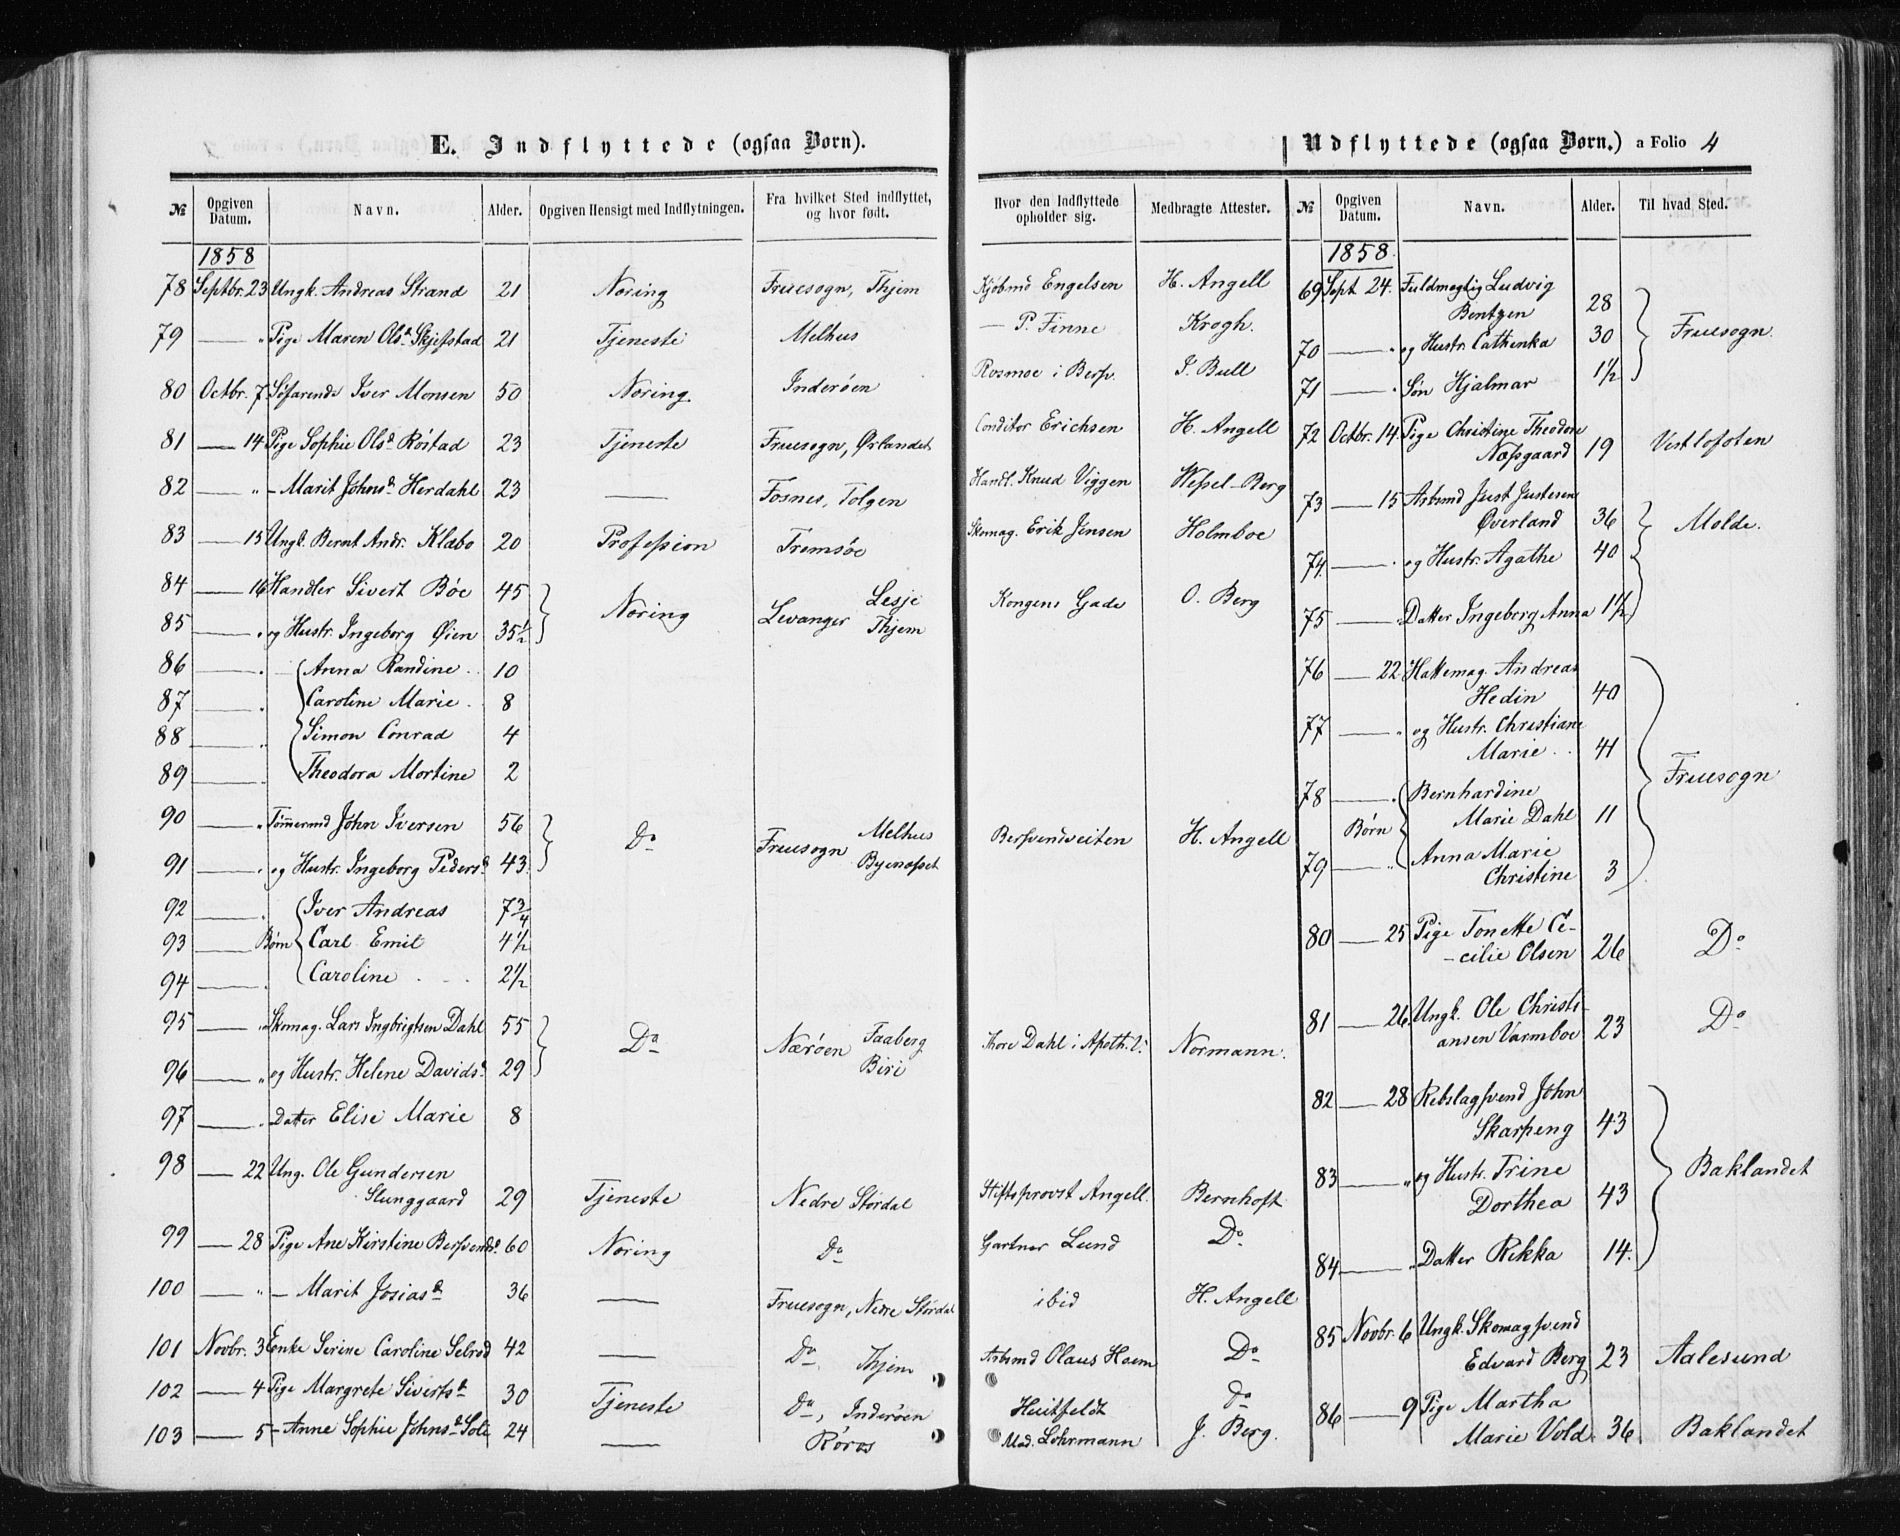 E. Indflyttede (ogsaa Børn).
№ Opgiven Datum. Navn. Alder. Opgiven Hensigt med Indflytningen. Fra hvilket Sted indflyttet, og hvor født. Hvor den Indflyttede opholder sig. Medbragte Attester.
1858
78 Septbr. 23 Ungk. Andreas Strand 21 Næring Fruesogn, Thjem Kjøbmd Engelsen H. Angell
79 — " Pige Maren Olsd. Skjefstad 21 Tjeneste Melhus — P. Finne Krogh.
80 Octbr. 7 Søfarende Iver Monsen 50 Næring Inderøen Rosmoe i Bersv. J. Bull
81 — 14 Pige Sophie Olsd. Røstad 23 Tjeneste Fruesogn, Ørlandet Conditor Erichsen H. Angell
82 — " — Marit Johnsd. Herdahl 23 — Fosnes, Tolgen Handl. Knud Viggen Wessel-Berg
83 — 15 Ungk. Bernt Andr. Klæbo 20 Profession Tromsøe Skomag. Erik Jensen Holmboe
84 — 16 Handler Sivert Bøe 45 Næring Levanger Lesje Kongens Gade O. Berg
85 — " og Hustr. Ingeborg Øien 35½ Thjem
86 — " Anna Randine 10
87 — " Caroline Marie 8
88 — " Simon Conrad 4
89 — " Theodora Mortine 2
90 — " Tømermd John Iversen 56 Do Fruesogn Melhus Bersvendveiten H. Angell
91 — " og Hustr. Ingeborg Pedersd. 43 Byenæsset
92 — " Iver Andreas 7¾
93 — Børn Carl Emil 4½
94 — " Caroline 2½
95 — " Skomag. Lars Ingbrigtsen Dahl 55 Do Nærøen Faaberg Thore Dahl i Apoth. V. Normann.
96 — " og Hustr. Helene Davidsd. 29 Biri
97 — " Datter Elise Marie 8
98 — 22 Ung. Ole Gundersen
Slunggaard 29 Tjeneste Nedre Stördal Stiftsprovst Angell. Bernhoft
99 — 28 Pige Ane Kirstine Bersvendsd. 60 Næring Do Gartner Lund Do
100 — " — Marit Josiasd. 36 — Fruesogn, Nedre Stördal ibid H. Angell
101 Novbr. 3 Enke Serine Caroline Selrod 42 — Do Thjem Arbsmd Olaus Hoem Do
102 — 4 Pige Margrete Sivertsd. 30 Tjeneste Do, Inderøen Huitfeldt Do
103 — 5 — Anne Sophie Johnsd. 24 — Røros Mad. Lohrmann J. Berg.
Udflyttede (ogsaa Børn.) a Folio 4
№ Opgiven Datum. Navn. Alder. Til hvad Sted.
1858.
69 Sept 24. Fuldmægtig Ludvig
Bentzen 28 Fruesogn.
70 — " og Hustr. Cathinka 30
71 — " Søn Hjalmar 1½
72 Octbr. 14. Pige Christine Theodore
Næssgaard 19 Vestlofoten
73 — 15 Arbsmd Just Justesen
Øverland 36 Molde.
74 — " og Hustr. Agathe 40
75 — Datter Ingeberg Anna 1½
76 — 22 Hattemag. Andreas
Hedin 40 Fruesogn
77 — " og Hustr. Christiane
Marie 41
78 — " Bernhardine
Børn Marie Dahl 11
79 — " Anna Marie
Christine 3
80 — 25 Pige Tonette Ce-
-cilie Olsen 26 Do
81 — 26 Ungk. Ole Christi-
ansen Varmboe 23 Do
82 — 28 Rebslagsvend John
Skarpeng 43 Baklandet
83 — " og Hustr. Trine
Dorthea 43
84 — " Datter Rikka 14.
85 Novbr. 6 Ungk. Skomagsvend
Edvard Berg 23 Aalesund
86 — 9 Pige Martha
Marie Vold. 36. Baklandet